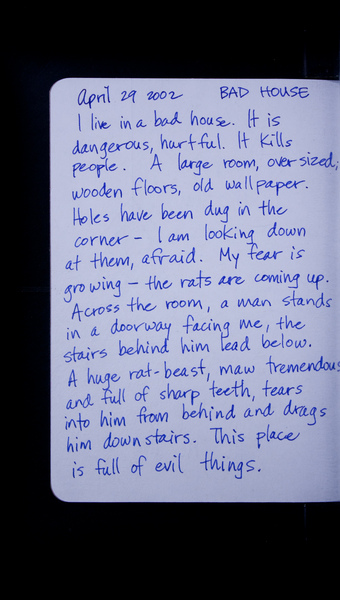 April 29 2002 BAD HOUSE
I live in a bad house. It is
dangerous, hurtful. It kills
people. A large room, oversized;
wooden floors, old wallpaper.
Holes have been dug in the
corner – I am looking down
at them, afraid. My fear is
growing – the rats are coming up.
Across the room, a man stands
in a doorway facing me, the
stairs behind him lead below.
A huge rat-beast, maw tremendous
and full of sharp teeth, tears
into him from behind and drags
him downstairs. This place
is full of evil things.